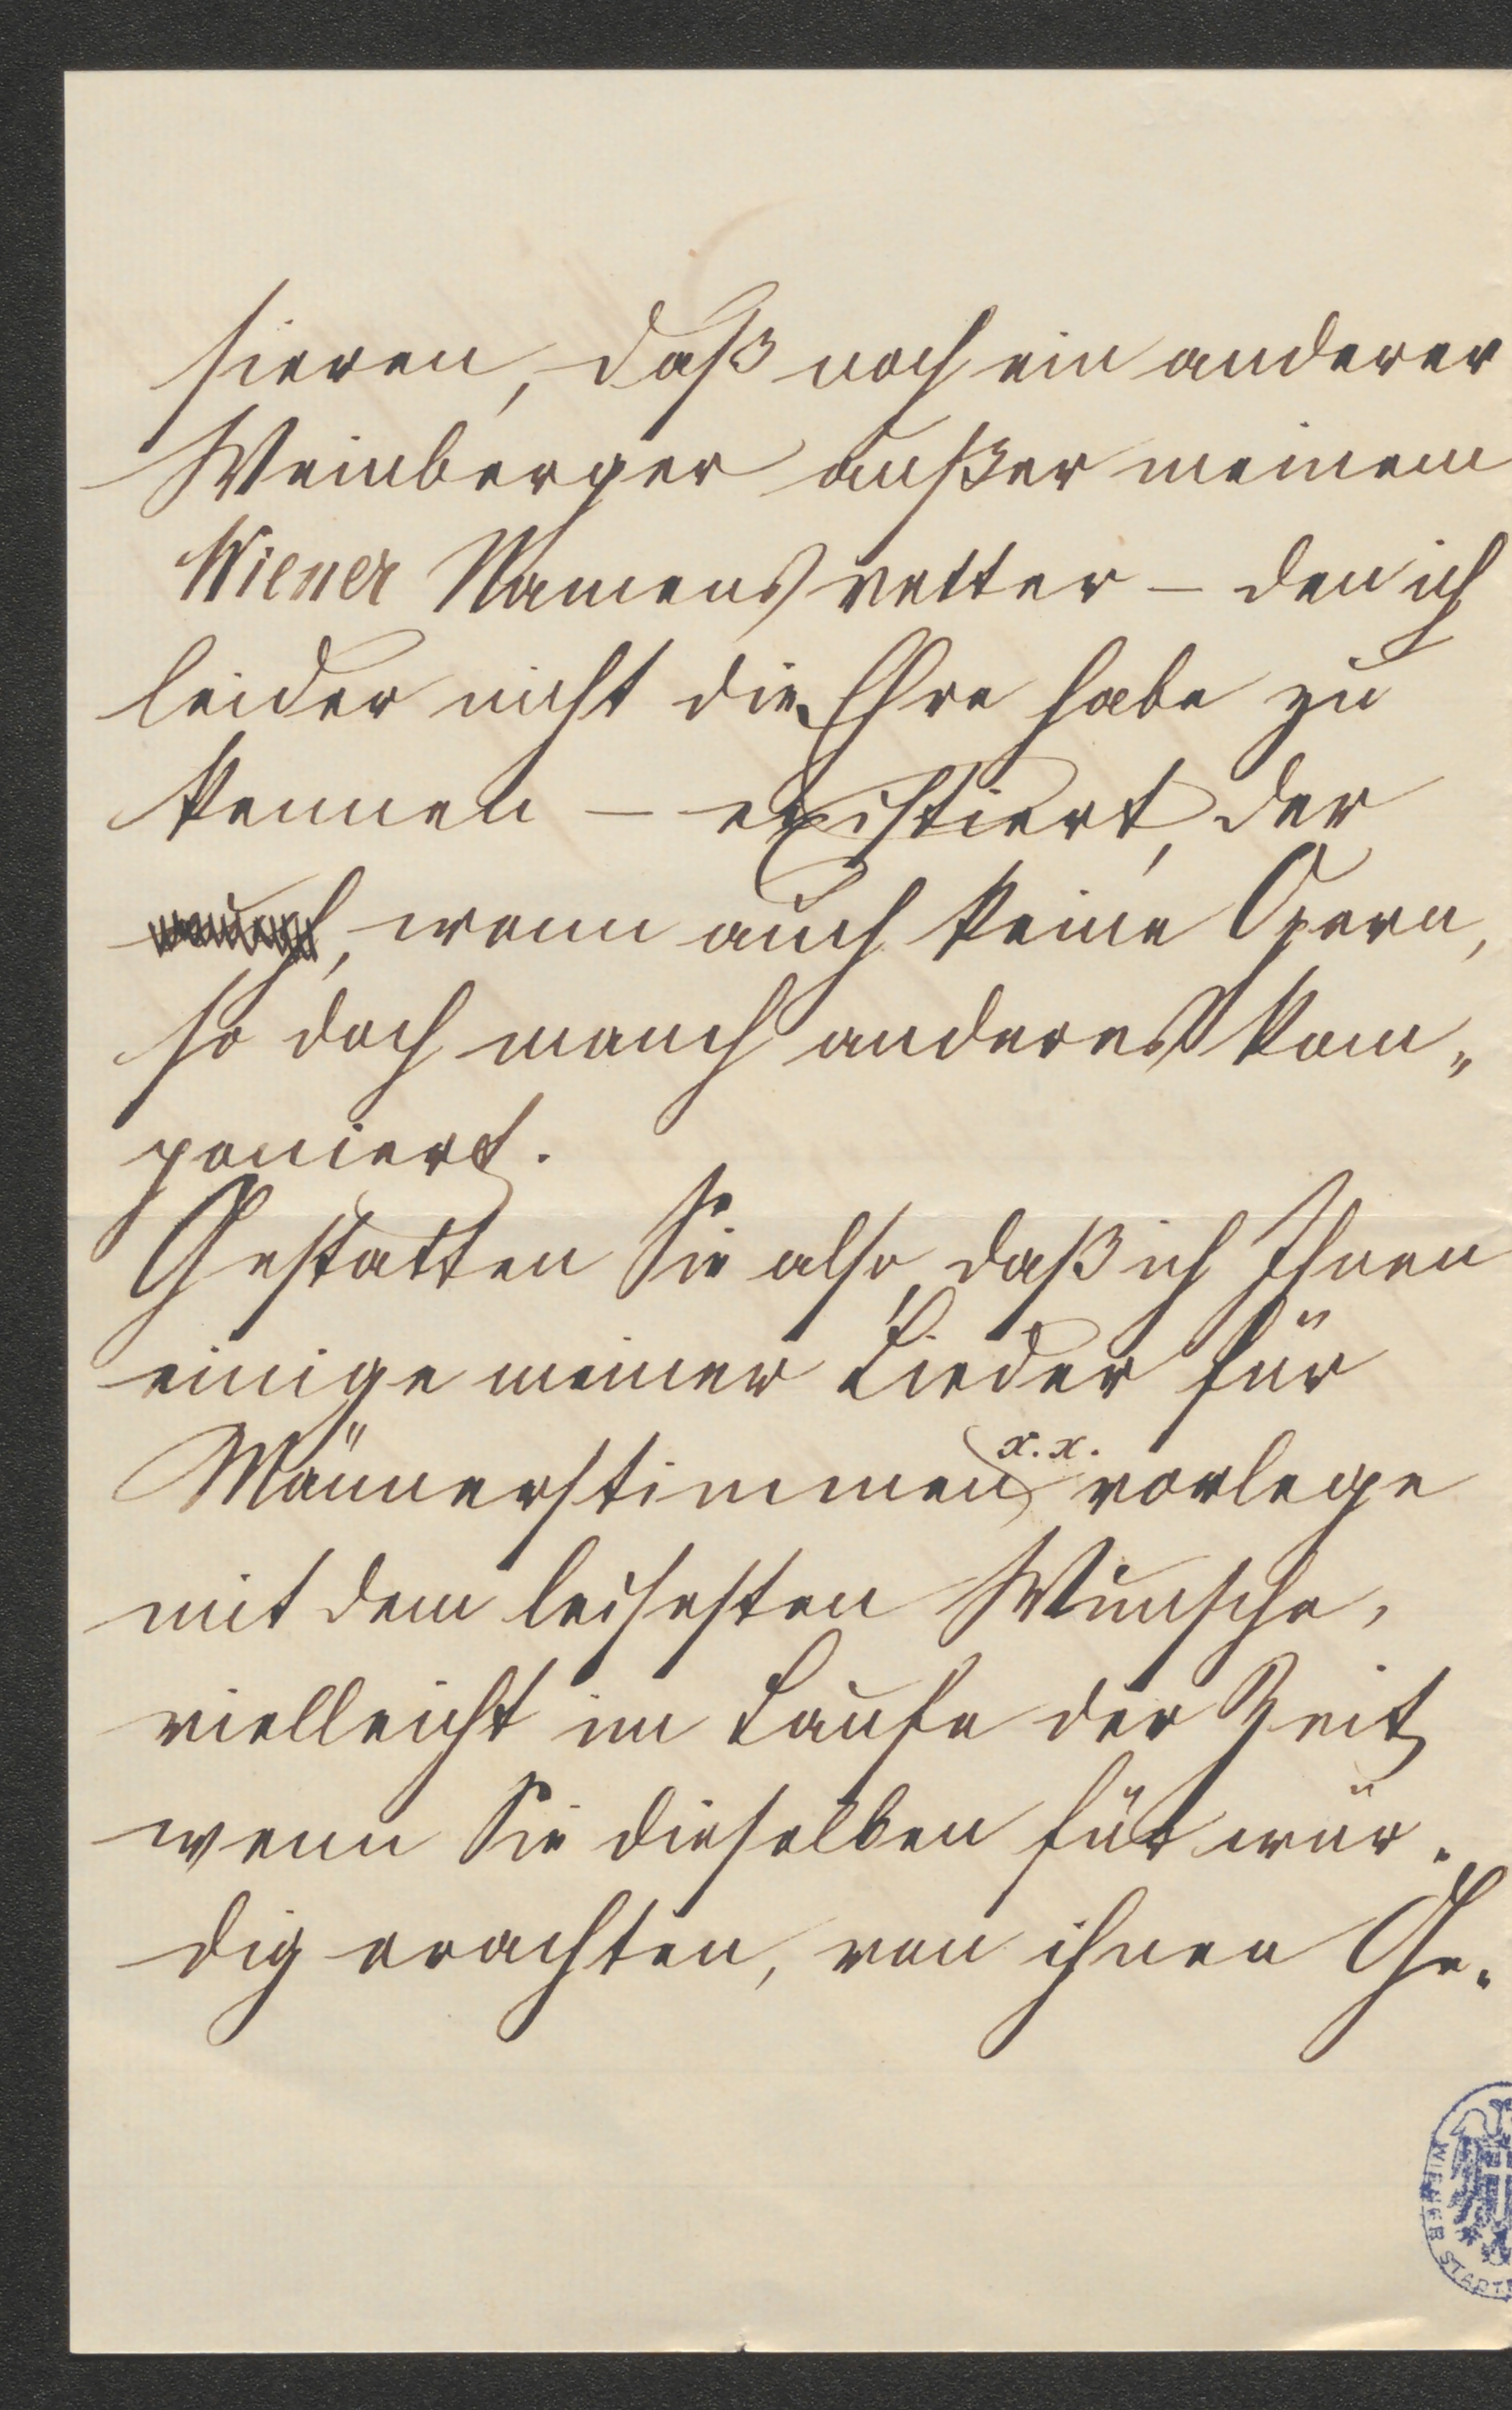 sieren, daß noch ein anderer
Weinberger außer meinem
Wiener Namensvetter – den ich
leider nicht die Ehre habe zu
kennen – existiert, der
, wenn auch keine Opern,
so doch manch anderes kom„
poniert.
Gestatten Sie also, daß ich Ihnen
einige meiner Lieder für
x. x.
Männerstimmen vorlege
mit dem leisesten Wunsche,
vielleicht im Laufe der Zeit
wenn Sie dieselben für wür-
dig erachten, von ihnen Ge-
WIENER STADT